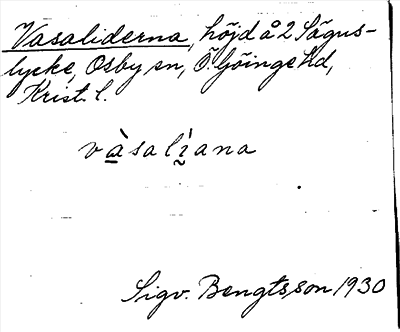 Vasaliderna, höjd å 2 Sågus-
lycke, Osby sn, Ö. Göinge hd,
Krist. l.
vàsalìana
Sigv. Bengtsson 1930